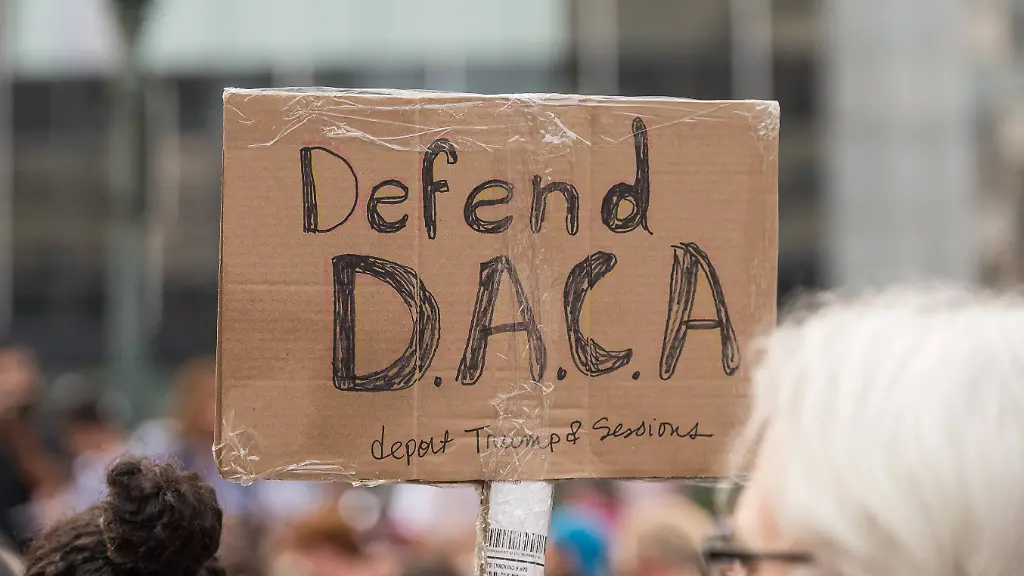 Defend
D.A.C.A
deport Trump & Sessions